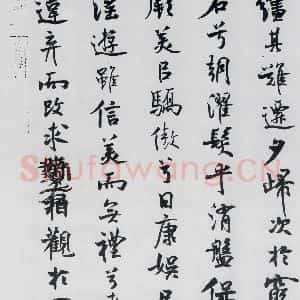 繣其難遷夕歸次於窮
石兮朝濯髮乎洧盤保
厥美以驕傲兮日康娛以
淫遊雖信美而無禮兮來
違棄而改求覽相觀於
Shufawang.CN